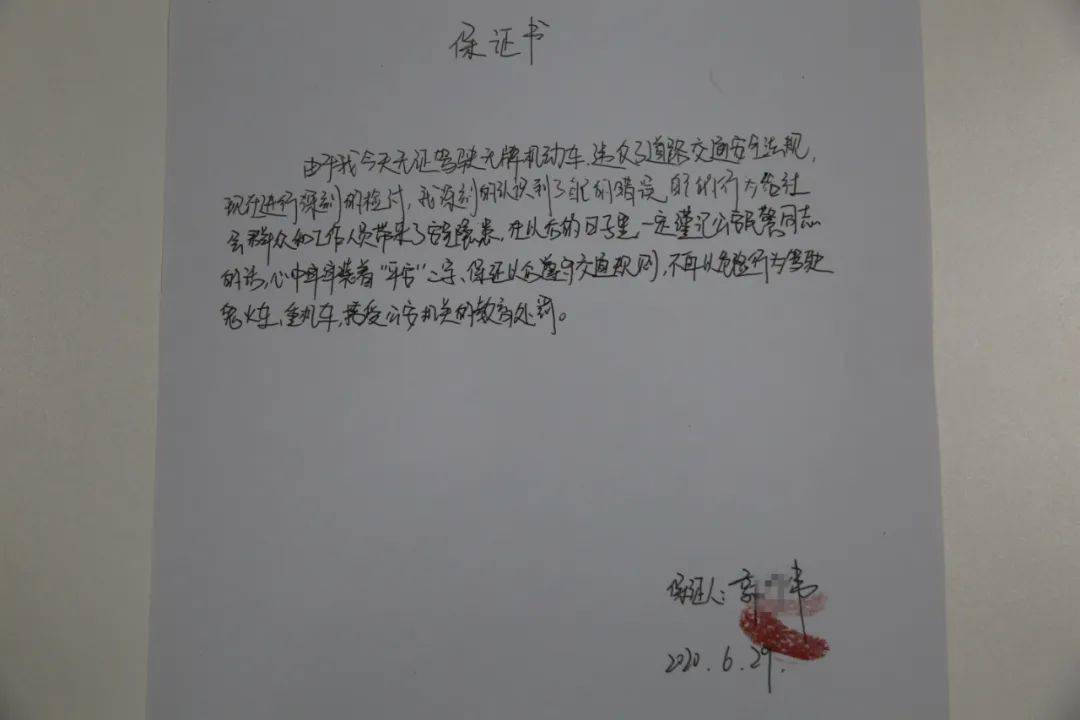 保证书
由于我今天无证驾驶无牌机动车,违反了道路交通安全法规,
现在进行深刻的检讨,我深刻的认识到了自己的错误,自己的行为给社
会群众和工作人员带来了安全隐患,在以后的日子里,一定谨记公安民警同志
的话,心中牢牢装着“平安”二字、保证以后遵守交通规则,不再以危险行为驾驶
火车、重机车,接受公安机关的教育处罚。
保证人:
2020.6.29.